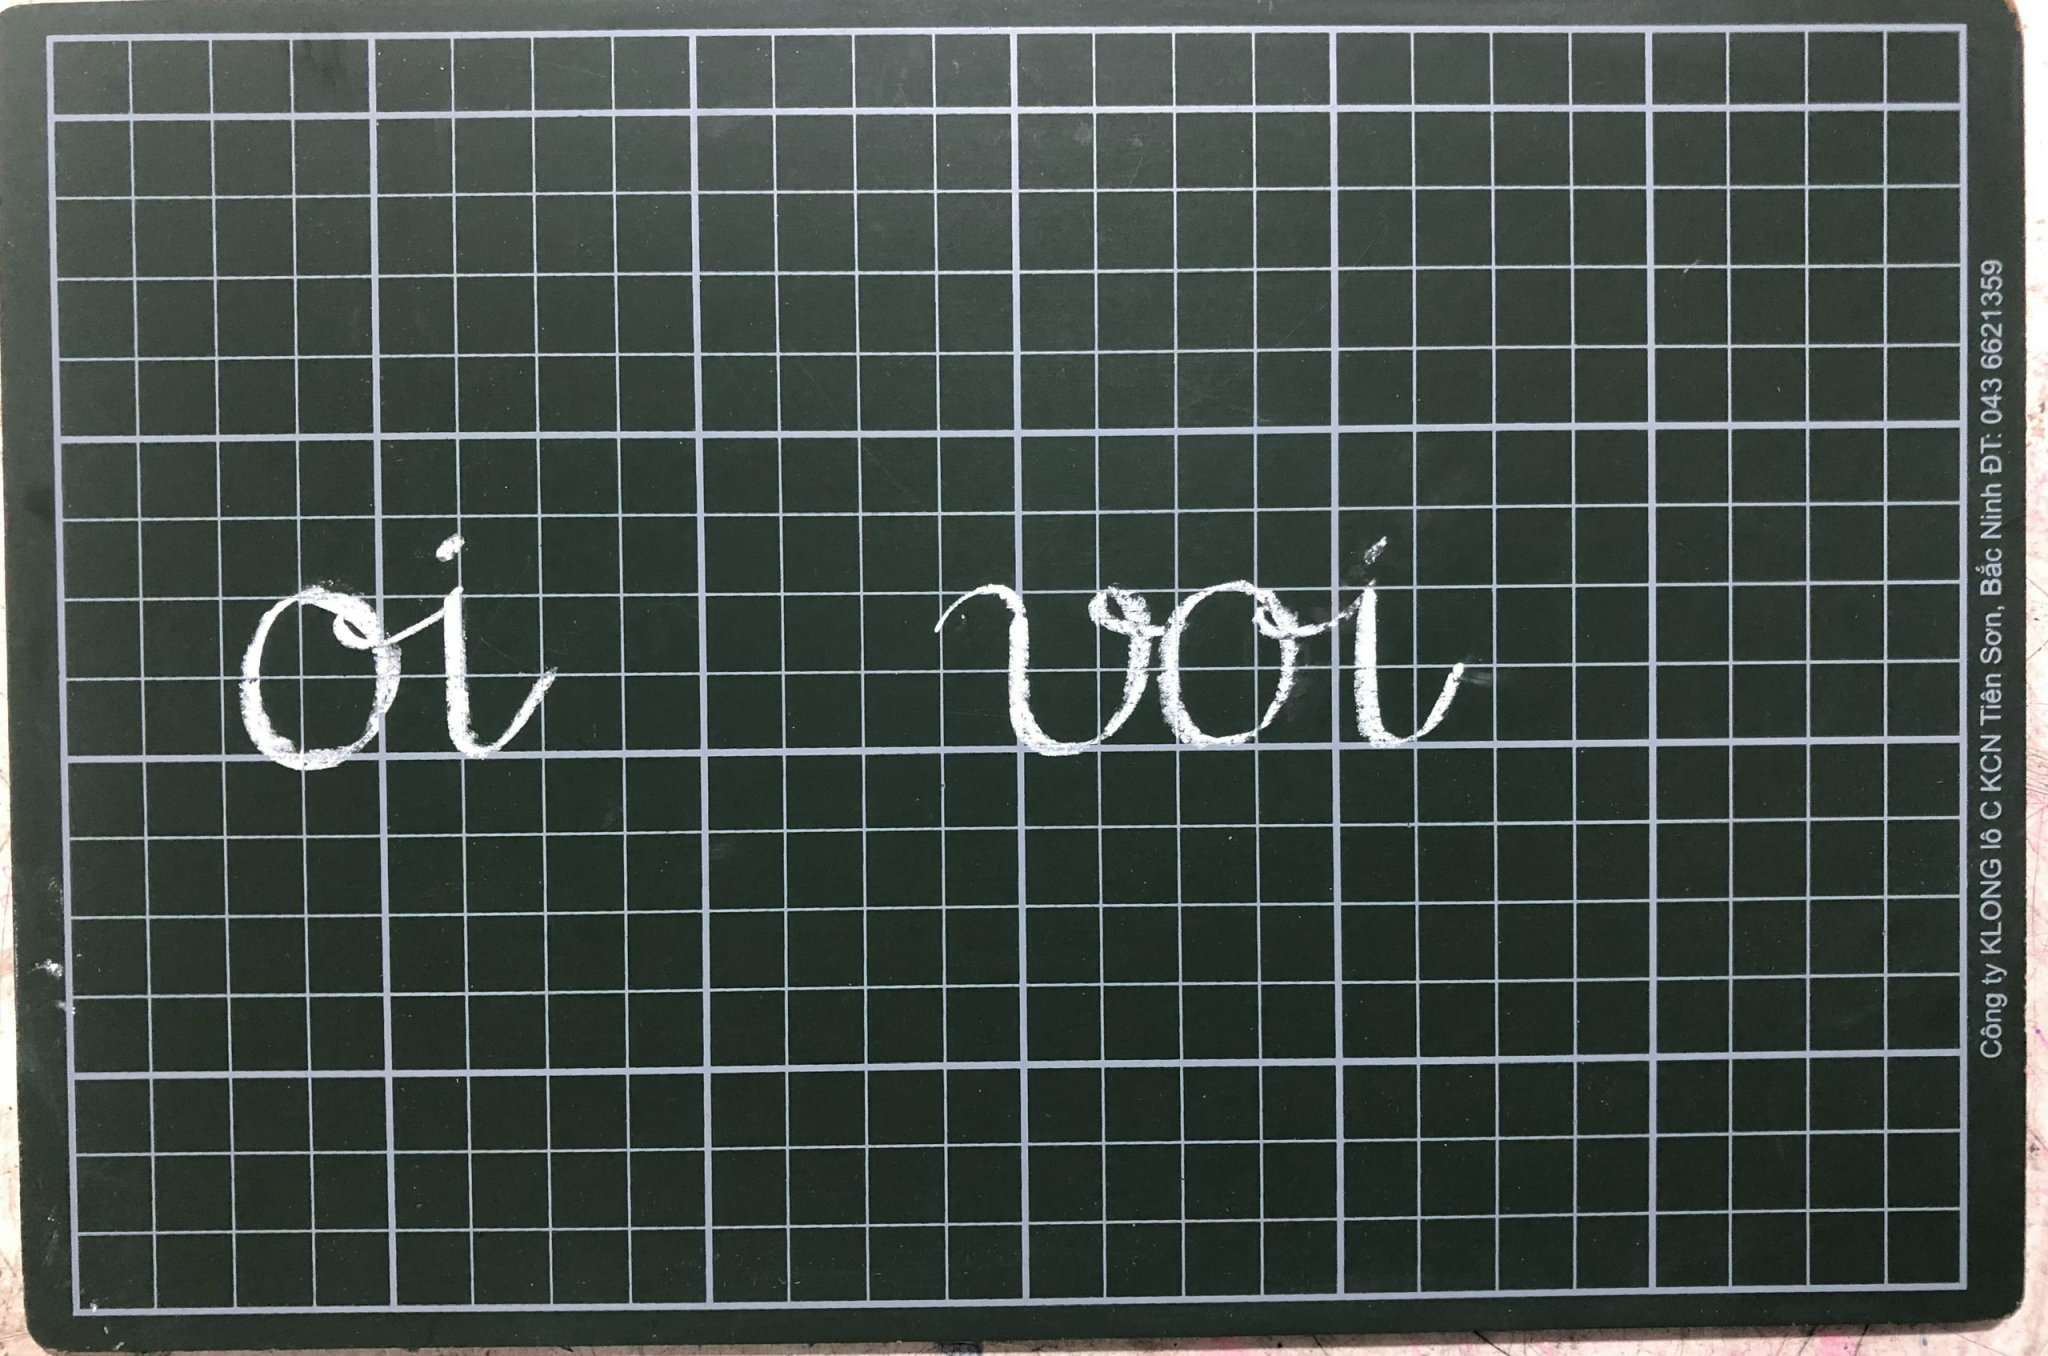 oi voi
Công ty KLONG lô C KCN Tiên Sơn, Bắc Ninh ĐT: 043 6621359